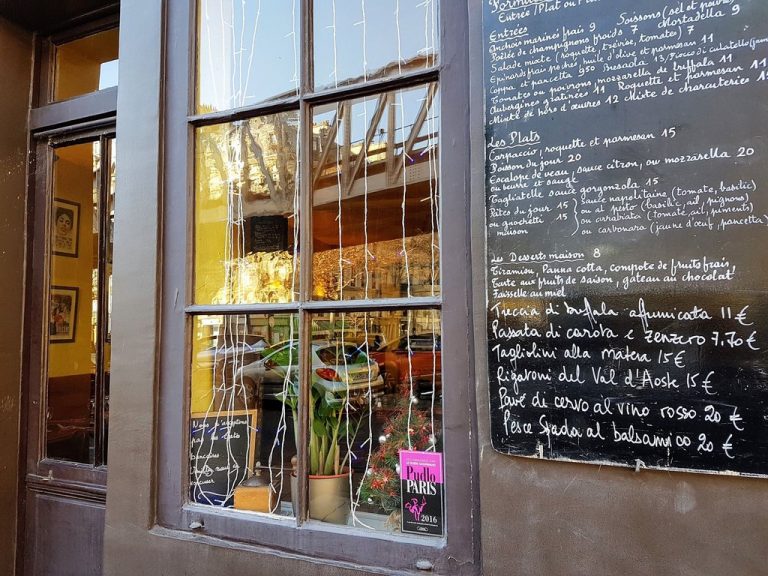 Formule
Entrée / Plat ou Pla
Entrées
Soissons (sel et poivre
Anchois marinés frais 9 Mortadella 9
Poêlée de champignons froids 7
Salade mixte (roquette, trévise, tomates) 7
Epinards frais poches huile d'olive et parmesan 11
Coppa et pancetta 9 Bresaola 13 / Fiocco di culatello (jam
Tomates ou poivrons mozzarella de buffala 11
Aubergines gratinées 11 Roquette et parmesan 11
Mixte de hors d'œuvres 12 Mixte de charcuteries 15
Les Plats
Carpaccio, roquette et parmesan 15
Poisson du jour 20
Escalope de veau, sauce citron, ou mozzarella 20
ou beurre et sauge
Tagliatelle sauce gorgonzola 15
Pâtes du jour 15 sauce napolitaine (tomate, basilic)
ou gnocchetti 15 ou al pesto (basilic, ail, pignons)
maison ou arrabiata (tomate, ail, piments)
ou carbonara (jaune d'œuf, pancetta
Les Desserts maison 8
Tiramisu, Panna cotta, compote de fruits frais,
Tarte aux fruits de saison, gâteau au chocolat
Faisselle au miel
Tuccia di buffala affumicata 11 €
Passata di carota e zenzero 7,70 €
Tagliolini alla matera 15 €
Rigatoni del Val d'Aoste 15 €
Pavé di cervo al vino rosso 20 €
Pesce Spada al balsamico 20 €
Nous n'acceptons
pas de carte
bancaire
Pudlo
PARIS
2016